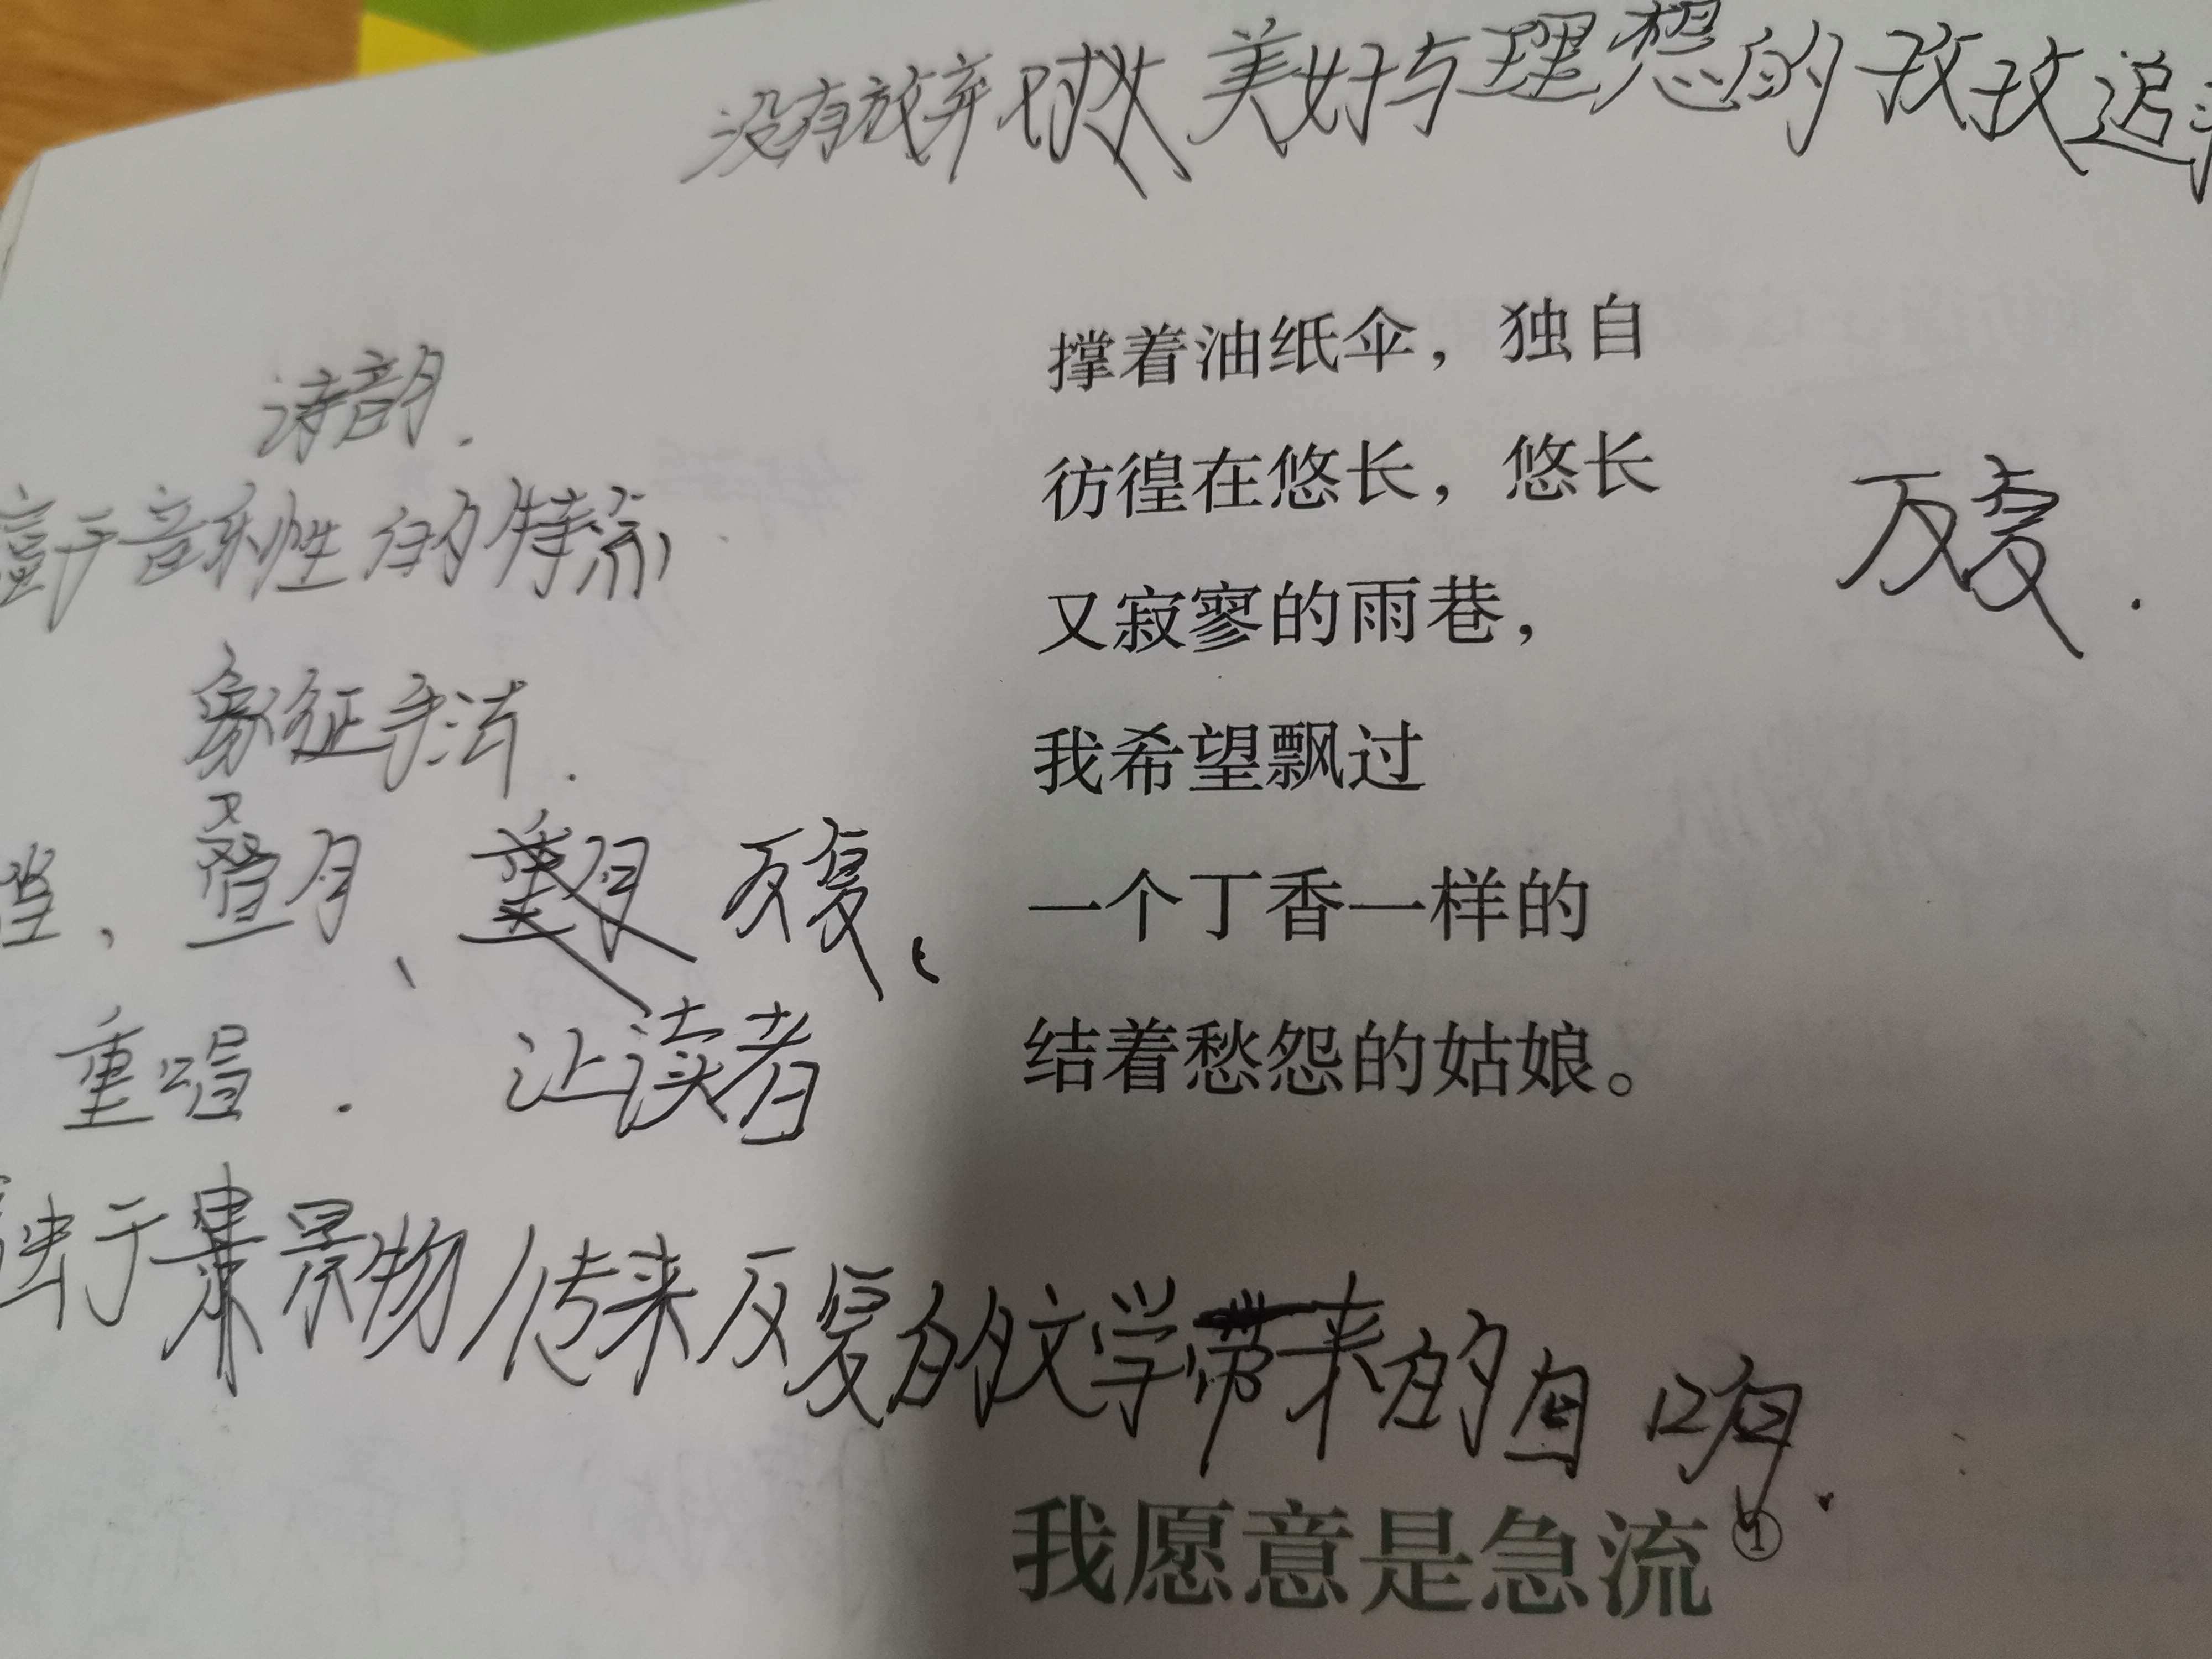 没有放弃对美好与理想的孜孜追求
诗韵.
富于音乐性的特点
象征手法.
撑着油纸伞，独自
彷徨在悠长，悠长
又寂寥的雨巷，
我希望飘过
一个丁香一样的
结着愁怨的姑娘。
反复.
叠句、反复、
重唱. 让读者
于景物传来反复的文学带来的
我愿意是急流①